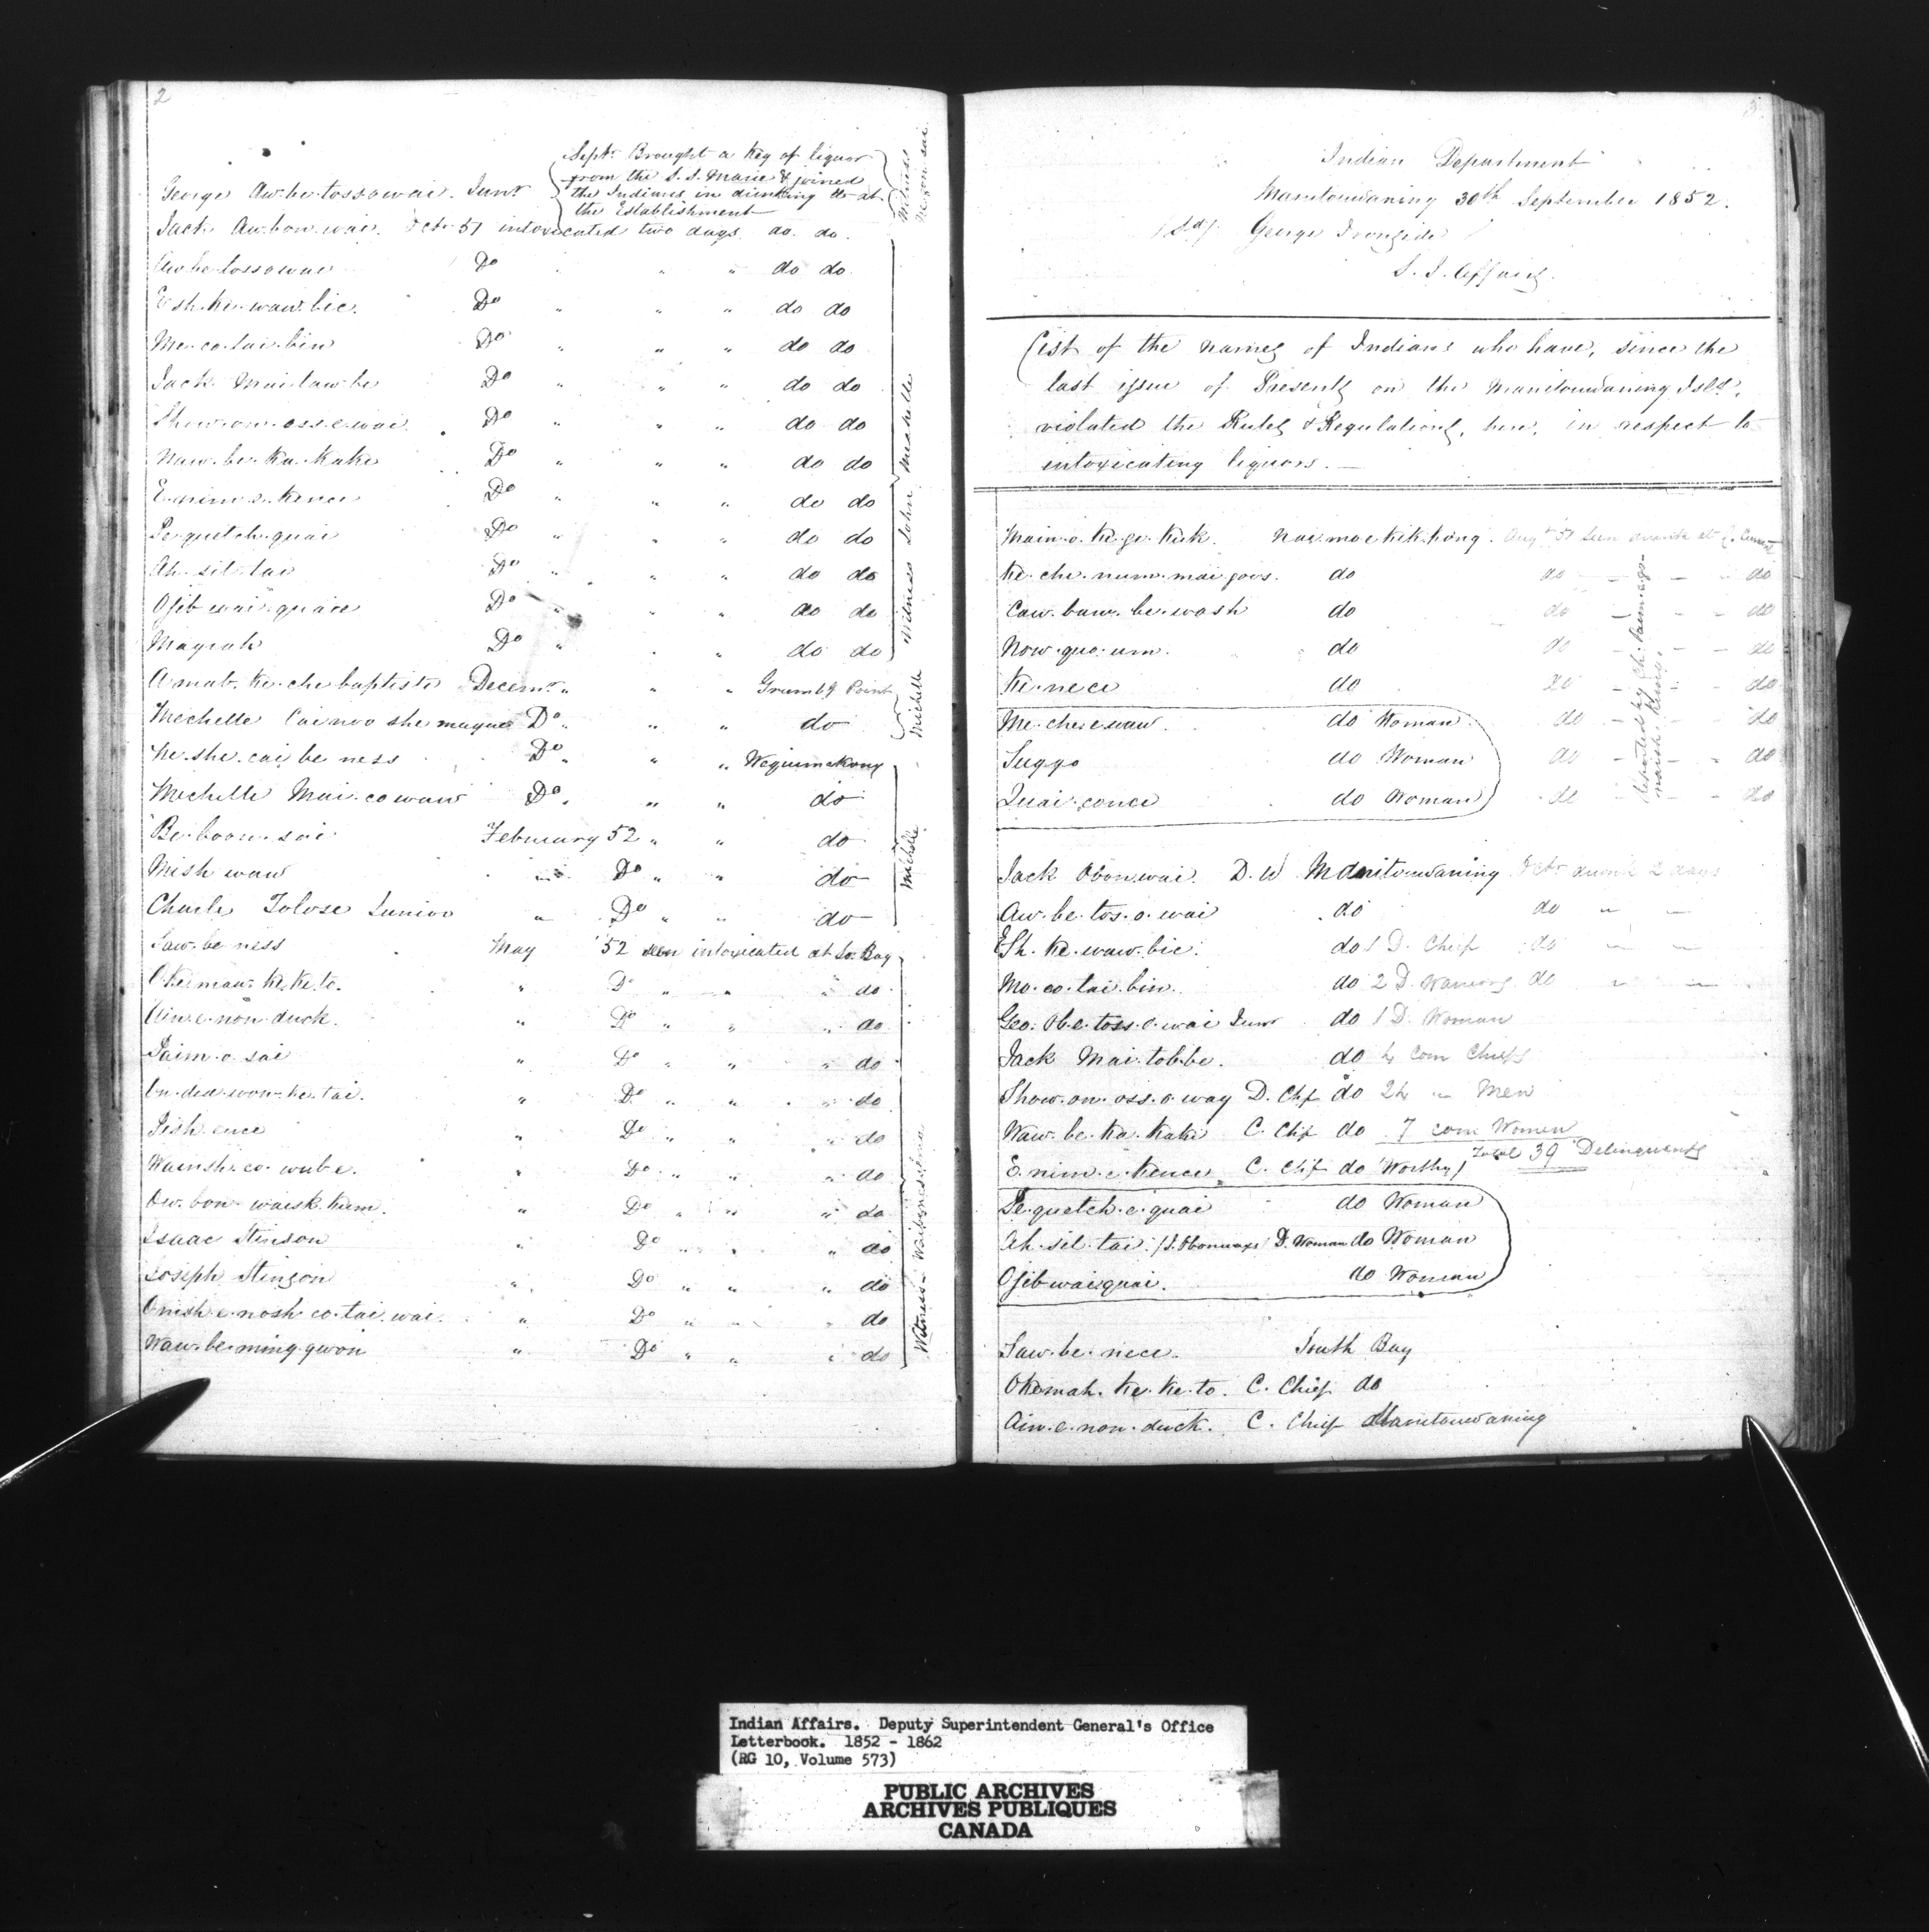 2
Septr Brought a Keg of liquor
from the S. S. Marie & joined
the Indians in drinking &c at
the Establishment
George Aw.be.tossowai. Junr
Jack Aw.bon.wai. Octr 51 intoxicated two days do. do.
Aw.be.tossowai Do " " " do do
Esh.ke.waw.bic. Do " " " do do
Mo.co.tai.bin Do " " " do do
Jack Mai.taw.be Do " " " do do
Show.on.oss.e.wai Do " " " do do
Waw.be.ka.kake Do " " " do do
E.nim.e.kence Do " " " do do
Pe.quetch.quai Do " " " do do
Ah.sit.tai Do " " " do do
Ojib.wai.quaice Do " " " do do
Magiah Do " " " do do
Witness John Michelle
Amab. Ke.che baptiste Decemr " " " Grumbg Point
Michelle Cai noo she magua Do " " " do
Michelle
Ke.she.cai be ness Do " " " Wequimekong
Michelle Mai.cowaw Do " " " do
Be.boon.sai February 52 " " do
Mish waw " Do " " do
Charle Tolose Junior " Do " " do
Michelle
Saw.be ness May '52 seen intoxicated at So. Bay
Okemaw. Ke.Ke.to. " Do " " " do
Ain.e.non.duck. " Do " " " do
Paim.o.sai " Do " " " do
On.dea.won.ke.tai. " Do " " " do
Pish.ence " Do " " " do
Wainsh.co.wube. " Do " " " do
Ow.bon.waisk.kum. " Do " " " do
Isaac Stinson " Do " " " do
Joseph Stinson " Do " " " do
Onish.e.nosh.co.tai.wai. " Do " " " do
Waw.be.ming.gwon " Do " " " do
Witness
3
Indian Department
Manitouwaning 30th September 1852.
(Sd) George Ironside
S. I. Affairs.
List of the names of Indians who have, since the
last issue of Presents on the Manitouwaning Isld.,
violated the Rules & Regulations, here, in respect to
intoxicating liquors. —
Main.o.ke.ge.kick. Nai.moe kik.kong. Augt 51 seen drunk at L. Current
Ke.che.num.mai.goos. do do - - - do
Caw.baw.be.wash do do - - - do
Now.quo.um. do do - - - do
Ke.nece do do - - - do
Me.chee.waw. do Woman do - - - do
Suggo do Woman do - - - do
Quai.conce do Woman do - - - do
Reported by
Jack Obonwai. D. W Manitouwaning Octr drunk 2 days
Aw.be.tos.o.wai do do " "
Esh.ke.waw.bic. do 1 D. Chief do " "
Mo.co.tai.bin. do 2 D. Warriors do " "
Geo. Obe.toss.o.wai Junr do 1 D. Woman
Jack Mai.tob.be. do 4 Com Chiefs
Show.on.oss.o.way D. Chf do 24 " Men
Waw.be.ka.kake C. Chf do 7 com Women
E.nim.e.kence C. Chf do (Worthy) Total 39 Delinquents
Pe.quetch.e.quai do Woman
Ah.sit.tai. (J. Obonwais D. Woman do Woman
Ojibwaiquai. do Woman
Saw.be.nece. South Bay
Okemah.ke.ke.to. C. Chief do
Ain.e.non.duck. C. Chief Manitouwaning
Indian Affairs. Deputy Superintendent General's Office
Letterbook. 1852 - 1862
(RG 10, Volume 573)
PUBLIC ARCHIVES
ARCHIVES PUBLIQUES
CANADA